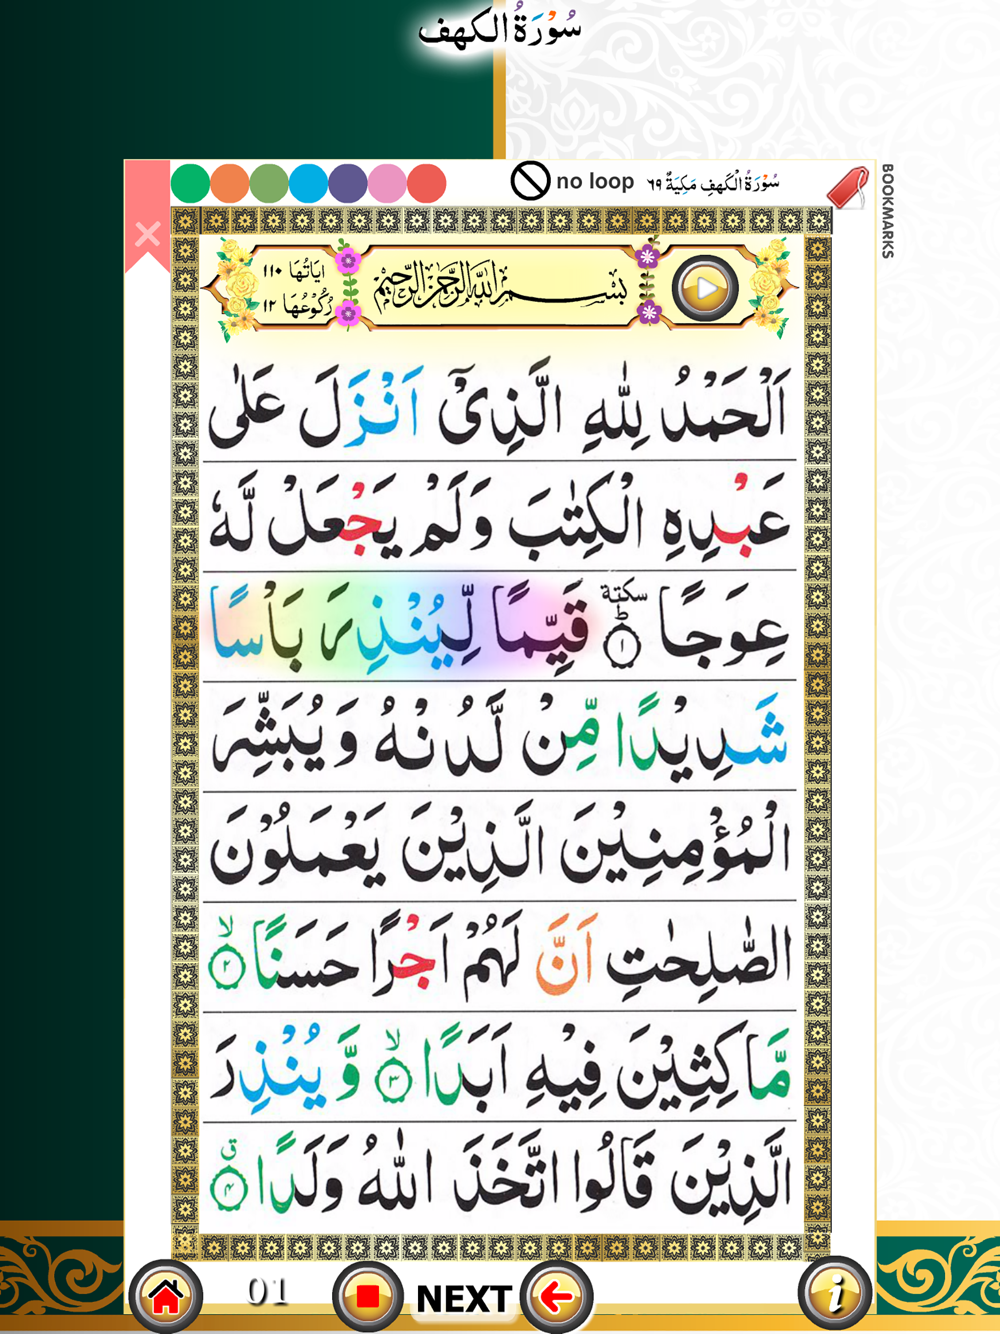 سُوْرَةُ الكهف
no loop
سُوْرَةُ الْكَهْفِ مَكِيَةٌ ٦٩
BOOKMARKS
بِسْمِ اللهِ الرَّحْمٰنِ الرَّحِيْمِ
اٰيَاتُهَا ١١٠
رُكُوْعُهَا ١٢
اَلْحَمْدُ لِلّٰهِ الَّذِىْٓ اَنْزَلَ عَلٰى
عَبْدِهِ الْكِتٰبَ وَلَمْ يَجْعَلْ لَّهٗ
عِوَجًا ؕ سكتة ١ قَيِّمًا لِّيُنْذِرَ بَاْسًا
شَدِيْدًا مِّنْ لَّدُنْهُ وَيُبَشِّرَ
الْمُؤْمِنِيْنَ الَّذِيْنَ يَعْمَلُوْنَ
الصّٰلِحٰتِ اَنَّ لَهُمْ اَجْرًا حَسَنًا ۙ ٢
مَّاكِثِيْنَ فِيْهِ اَبَدًا ۙ ٣ وَّيُنْذِرَ
الَّذِيْنَ قَالُوا اتَّخَذَ اللّٰهُ وَلَدًا ق ٤
01
NEXT
i